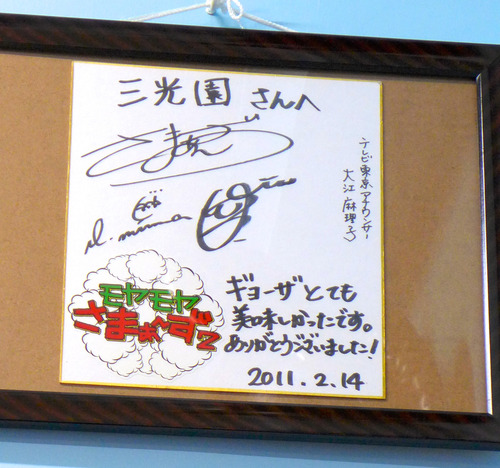 三光園 さんへ
さまぁ〜ず
テレビ東京アナウンサー
大江麻理子
モヤモヤ
さまぁ〜ず2
ギョーザとても
美味しかったです。
ありがとうございました!
2011.2.14